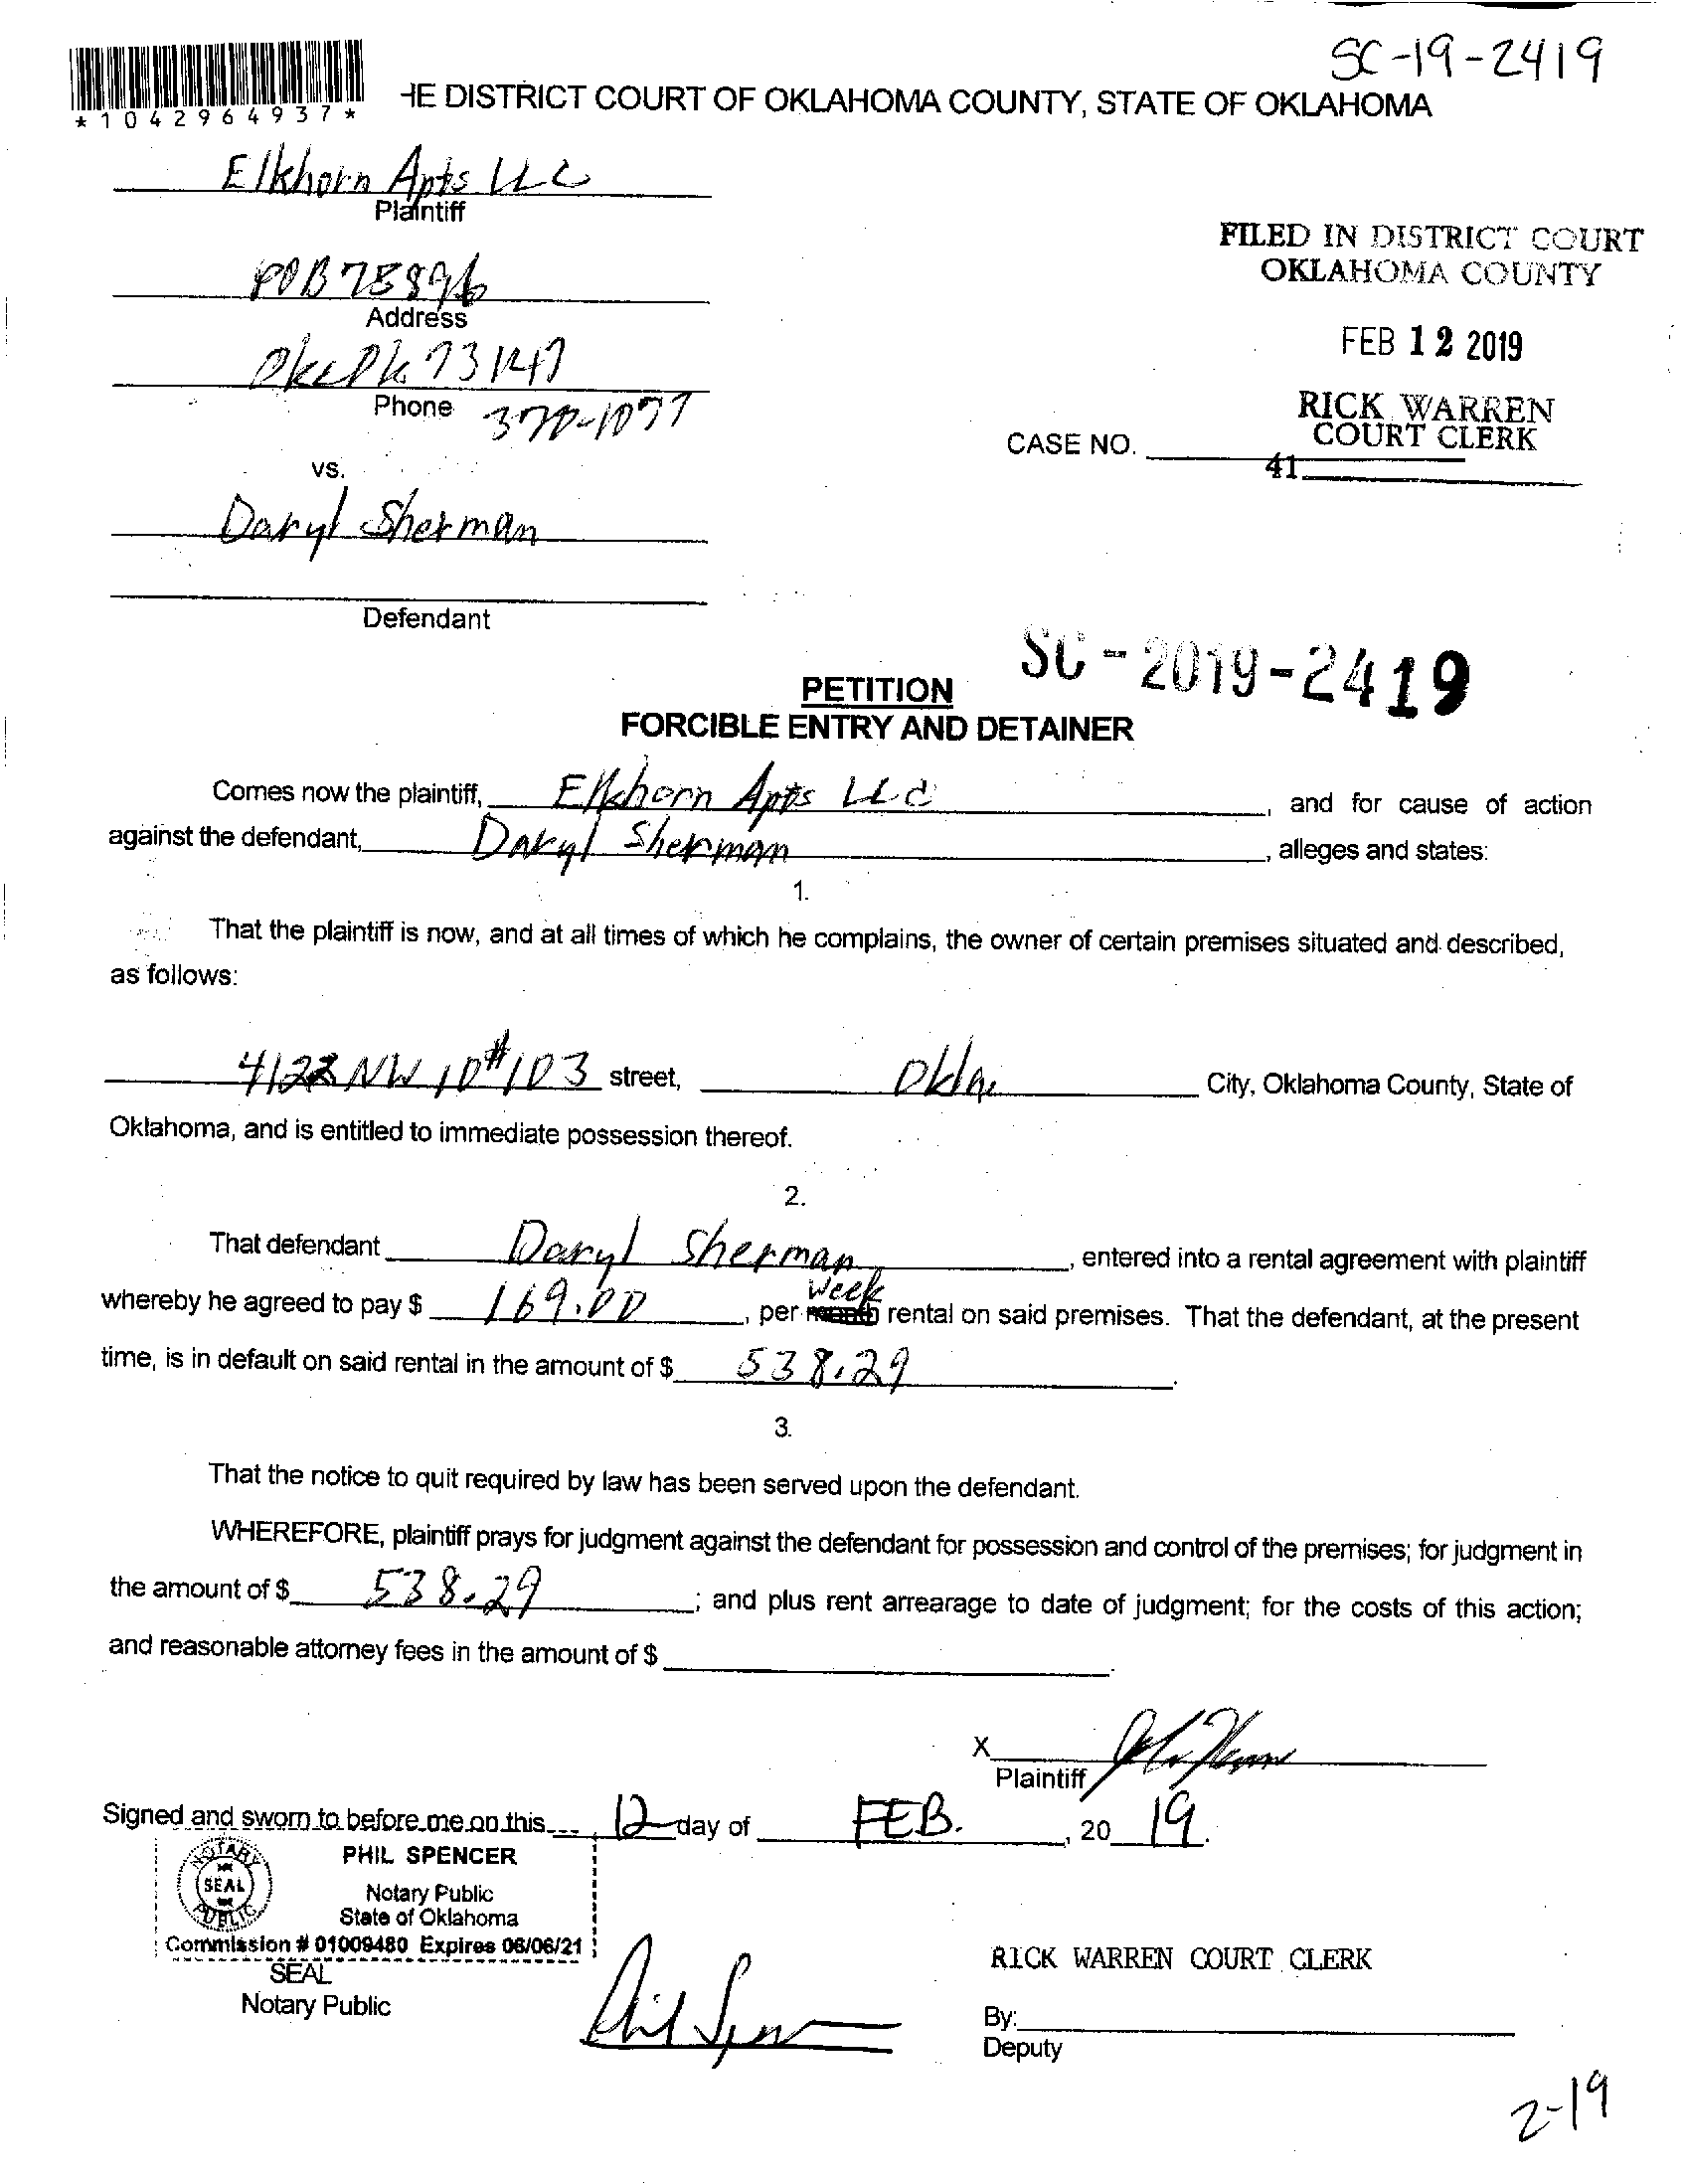 SC-19-2419
*1042964937*
HE DISTRICT COURT OF OKLAHOMA COUNTY, STATE OF OKLAHOMA
Elkhorn Apts LLC
Plaintiff
FILED IN DISTRICT COURT
OKLAHOMA COUNTY
POB 75896
Address
FEB 12 2019
Okc Ok 73147
Phone 370-1077
RICK WARREN
COURT CLERK
CASE NO.
41
vs.
Daryl Sherman
Defendant
SC-2019-2419
PETITION
FORCIBLE ENTRY AND DETAINER
Comes now the plaintiff, Elkhorn Apts LLC, and for cause of action
against the defendant, Daryl Sherman, alleges and states:
1.
That the plaintiff is now, and at all times of which he complains, the owner of certain premises situated and described,
as follows:
4122 NW 10 #103 street, Okla City, Oklahoma County, State of
Oklahoma, and is entitled to immediate possession thereof.
2.
That defendant Daryl Sherman, entered into a rental agreement with plaintiff
week
whereby he agreed to pay $ 169.00, per month rental on said premises. That the defendant, at the present
time, is in default on said rental in the amount of $ 538.29.
3.
That the notice to quit required by law has been served upon the defendant.
WHEREFORE, plaintiff prays for judgment against the defendant for possession and control of the premises; for judgment in
the amount of $ 538.29; and plus rent arrearage to date of judgment; for the costs of this action;
and reasonable attorney fees in the amount of $
X
Plaintiff
Signed and sworn to before me on this 12 day of FEB., 20 19.
NOTARY SEAL PUBLIC
PHIL SPENCER
Notary Public
State of Oklahoma
Commission # 01009480 Expires 06/06/21
SEAL
Notary Public
RICK WARREN COURT CLERK
By:
Deputy
2-19